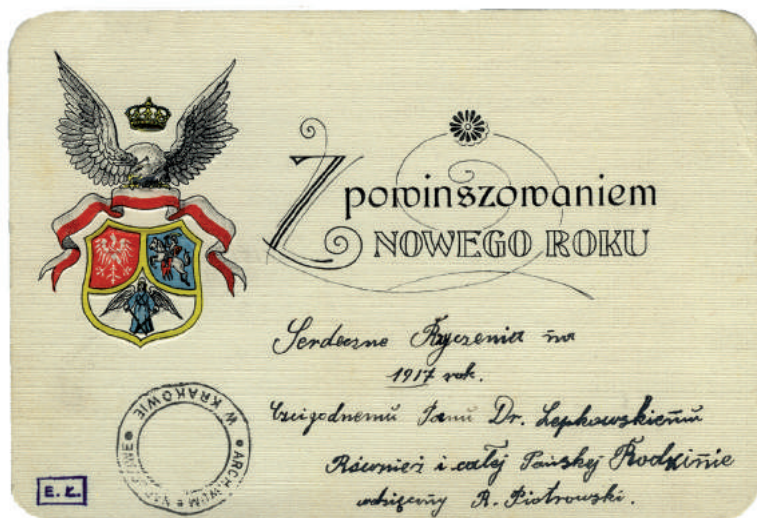 Z powinszowaniem
NOWEGO ROKU
Serdeczne Życzenia na
1917 rok.
Czcigodnemu Panu Dr. Łepkowskiemu
Również i całej Pańskiej Rodzinie
wdzięczny R. Piotrowski.
ARCHIWUM PAŃSTWOWE W KRAKOWIE
E. Ł.